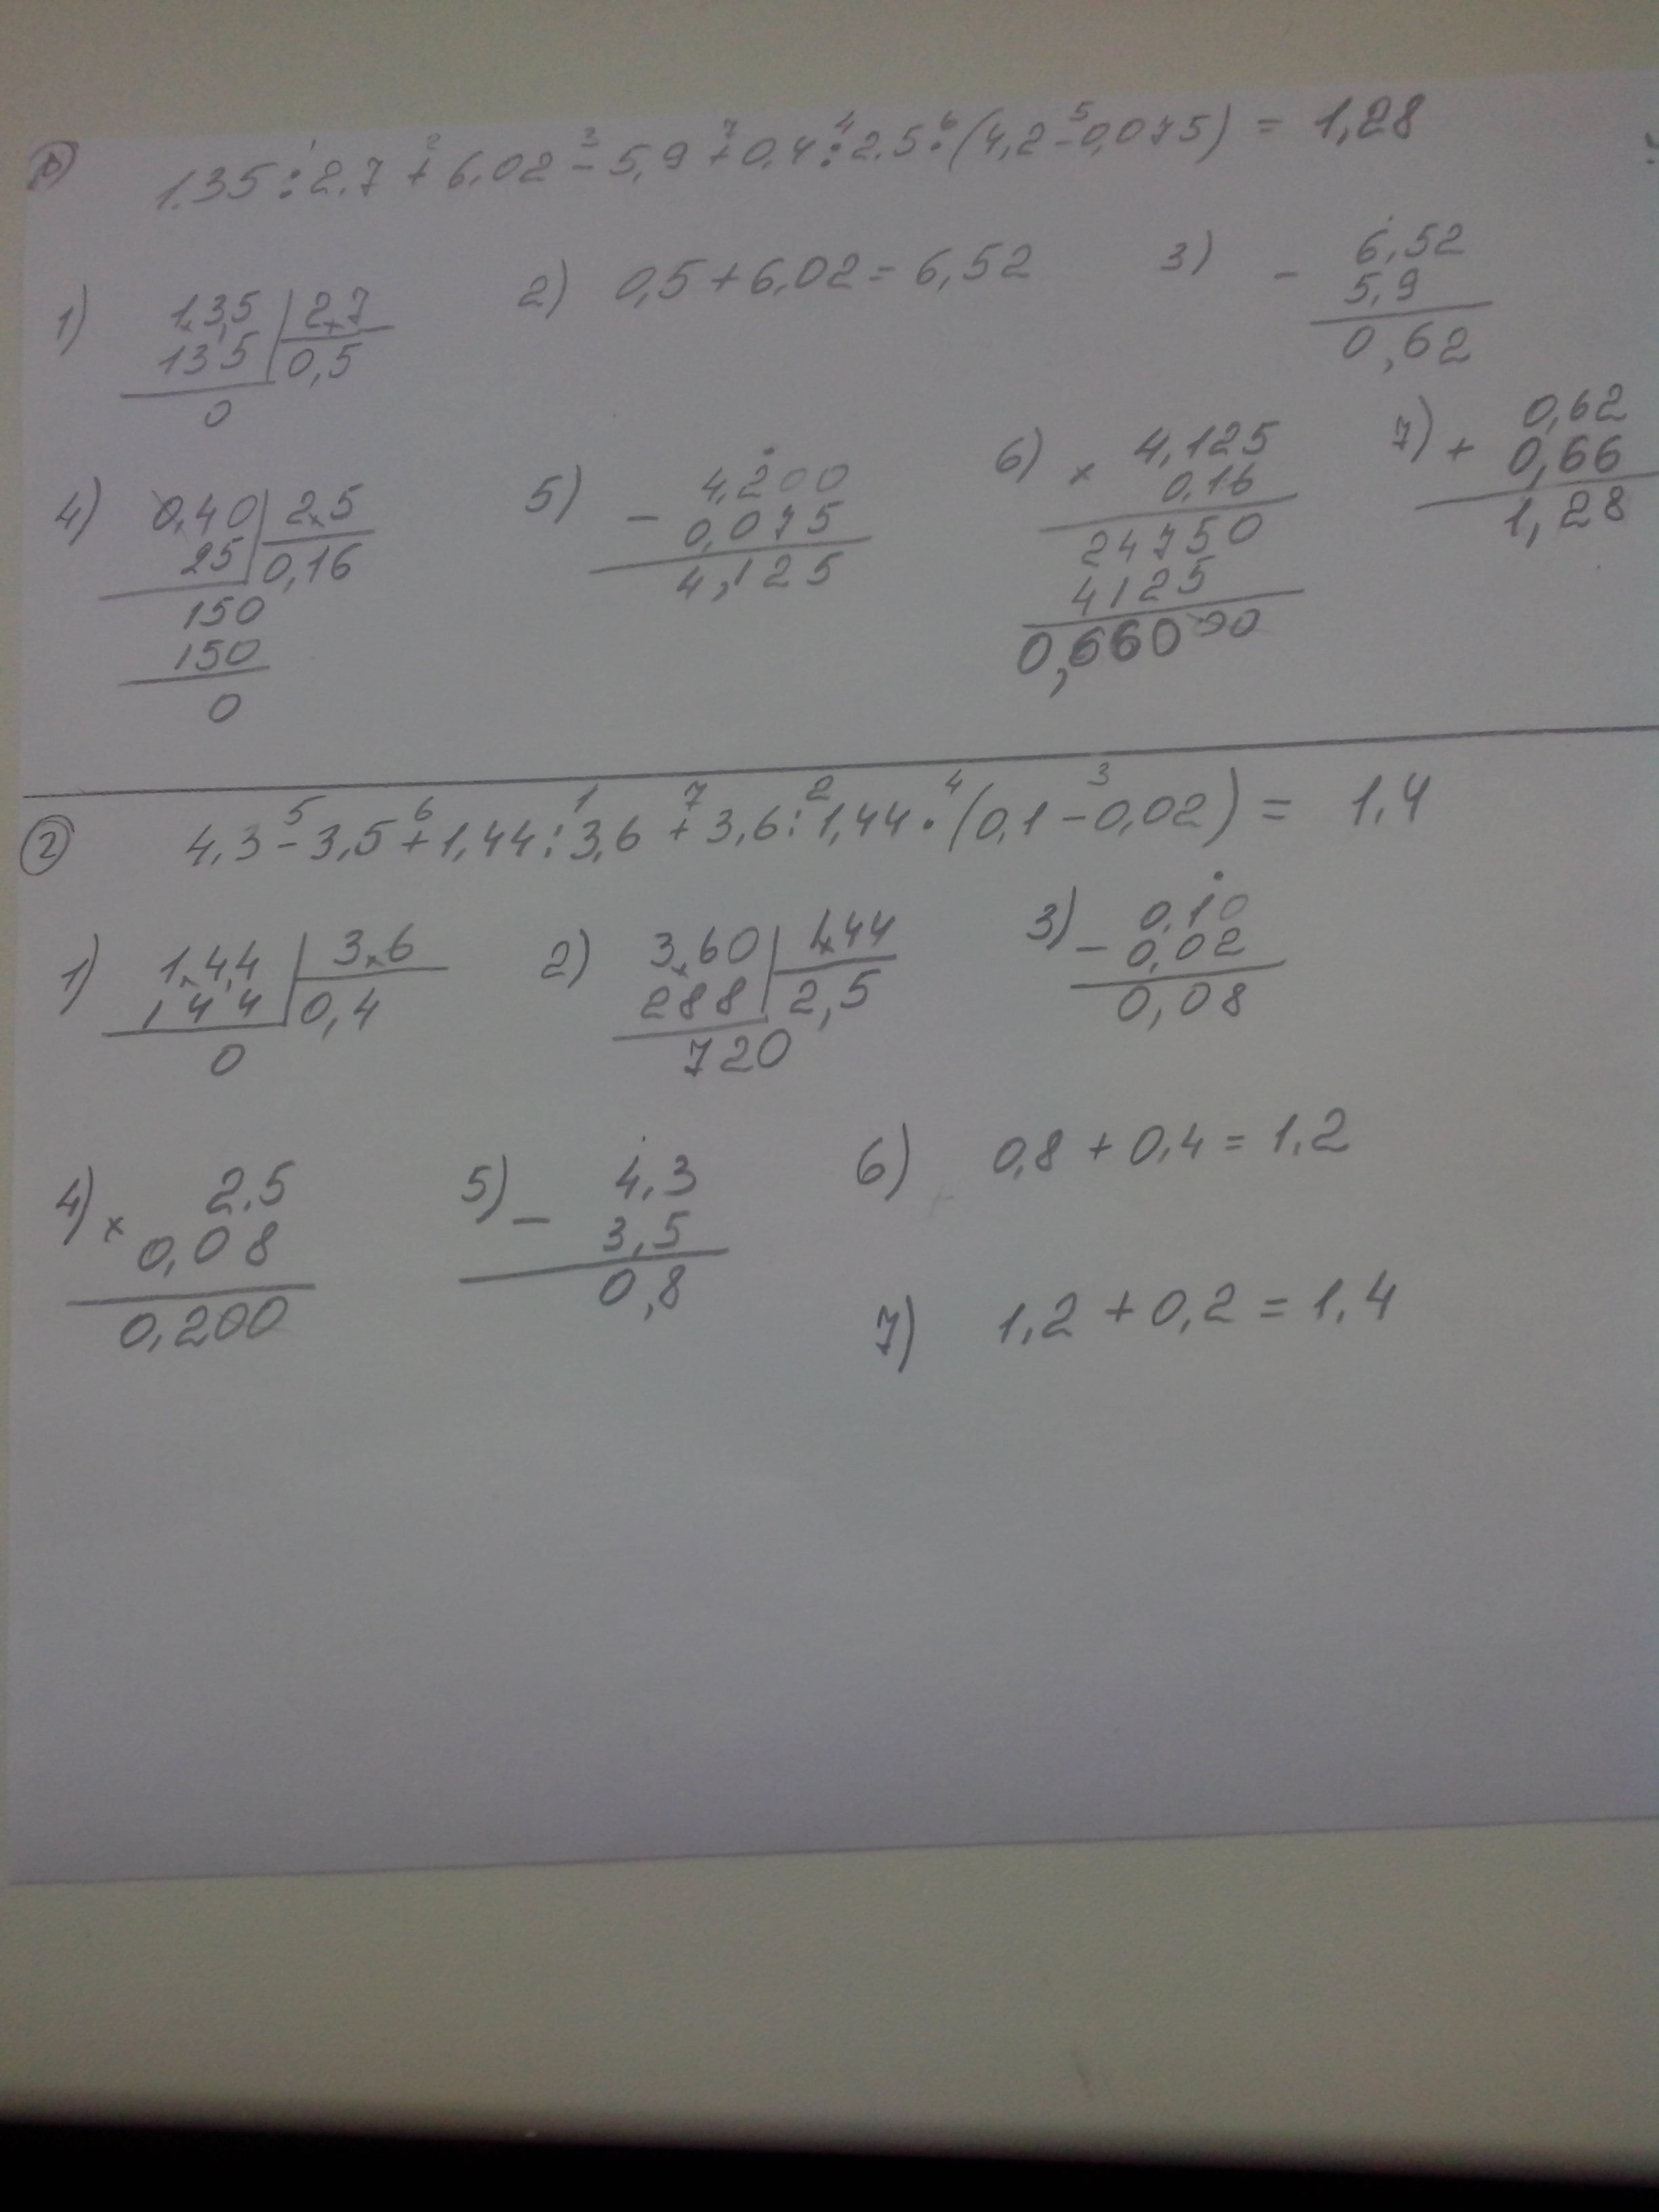 1) 1.35 : 2.7 + 6.02 - 5,9 + 0,4 : 2.5 · (4,2 - 0,075) = 1,28
1 2 3 7 4 6 5
1) 1,35 | 2,7
135 | 0,5
0
2) 0,5 + 6,02 = 6,52
3) - 6,52
5,9
0,62
4) 0,40 | 2,5
25 | 0,16
150
150
0
5) - 4,200
0,075
4,125
6) x 4,125
0,16
24750
4125
0,66000
7) + 0,62
0,66
1,28
2) 4,3 - 3,5 + 1,44 : 3,6 + 3,6 : 1,44 · (0,1 - 0,02) = 1,4
5 6 1 7 2 4 3
1) 1,44 | 3,6
144 | 0,4
0
2) 3,60 | 1,44
288 | 2,5
720
3) - 0,10
0,02
0,08
4) x 2,5
0,08
0,200
5) - 4,3
3,5
0,8
6) 0,8 + 0,4 = 1,2
7) 1,2 + 0,2 = 1,4